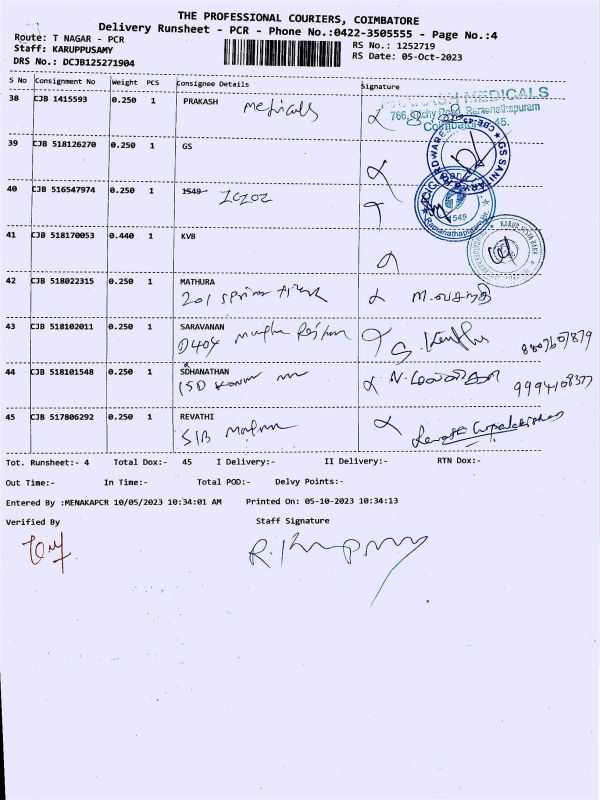 THE PROFESSIONAL COURIERS, COIMBATORE
Delivery Runsheet - PCR - Phone No.:0422-3505555 - Page No.:4
Route: T NAGAR - PCR
Staff: KARUPPUSAMY
DRS No.: DCJB125271904
RS No.: 1252719
RS Date: 05-Oct-2023
S No Consignment No Weight PCS Consignee Details Signature
38 CJB 1415593 0.250 1 PRAKASH Medicals
MEDICALS
766, Trichy Road, Ramanathapuram
Coimbatore 45.
39 CJB 518126270 0.250 1 GS
GS SANITARY HARDWARE CBE-45
40 CJB 516547974 0.250 1 1549 ICICI
1549
Ramanathapuram Br.
41 CJB 518170053 0.440 1 KVB
KARUR VYSYA BANK
42 CJB 518022315 0.250 1 MATHURA
201
M. வசந்தி
43 CJB 518102011 0.250 1 SARAVANAN
D404
8807607879
44 CJB 518101548 0.250 1 SDHANATHAN
15D
9994108377
45 CJB 517806292 0.250 1 REVATHI
S1B
Tot. Runsheet:- 4 Total Dox:- 45 I Delivery:- II Delivery:- RTN Dox:-
Out Time:- In Time:- Total POD:- Delvy Points:-
Entered By :MENAKAPCR 10/05/2023 10:34:01 AM Printed On: 05-10-2023 10:34:13
Verified By Staff Signature